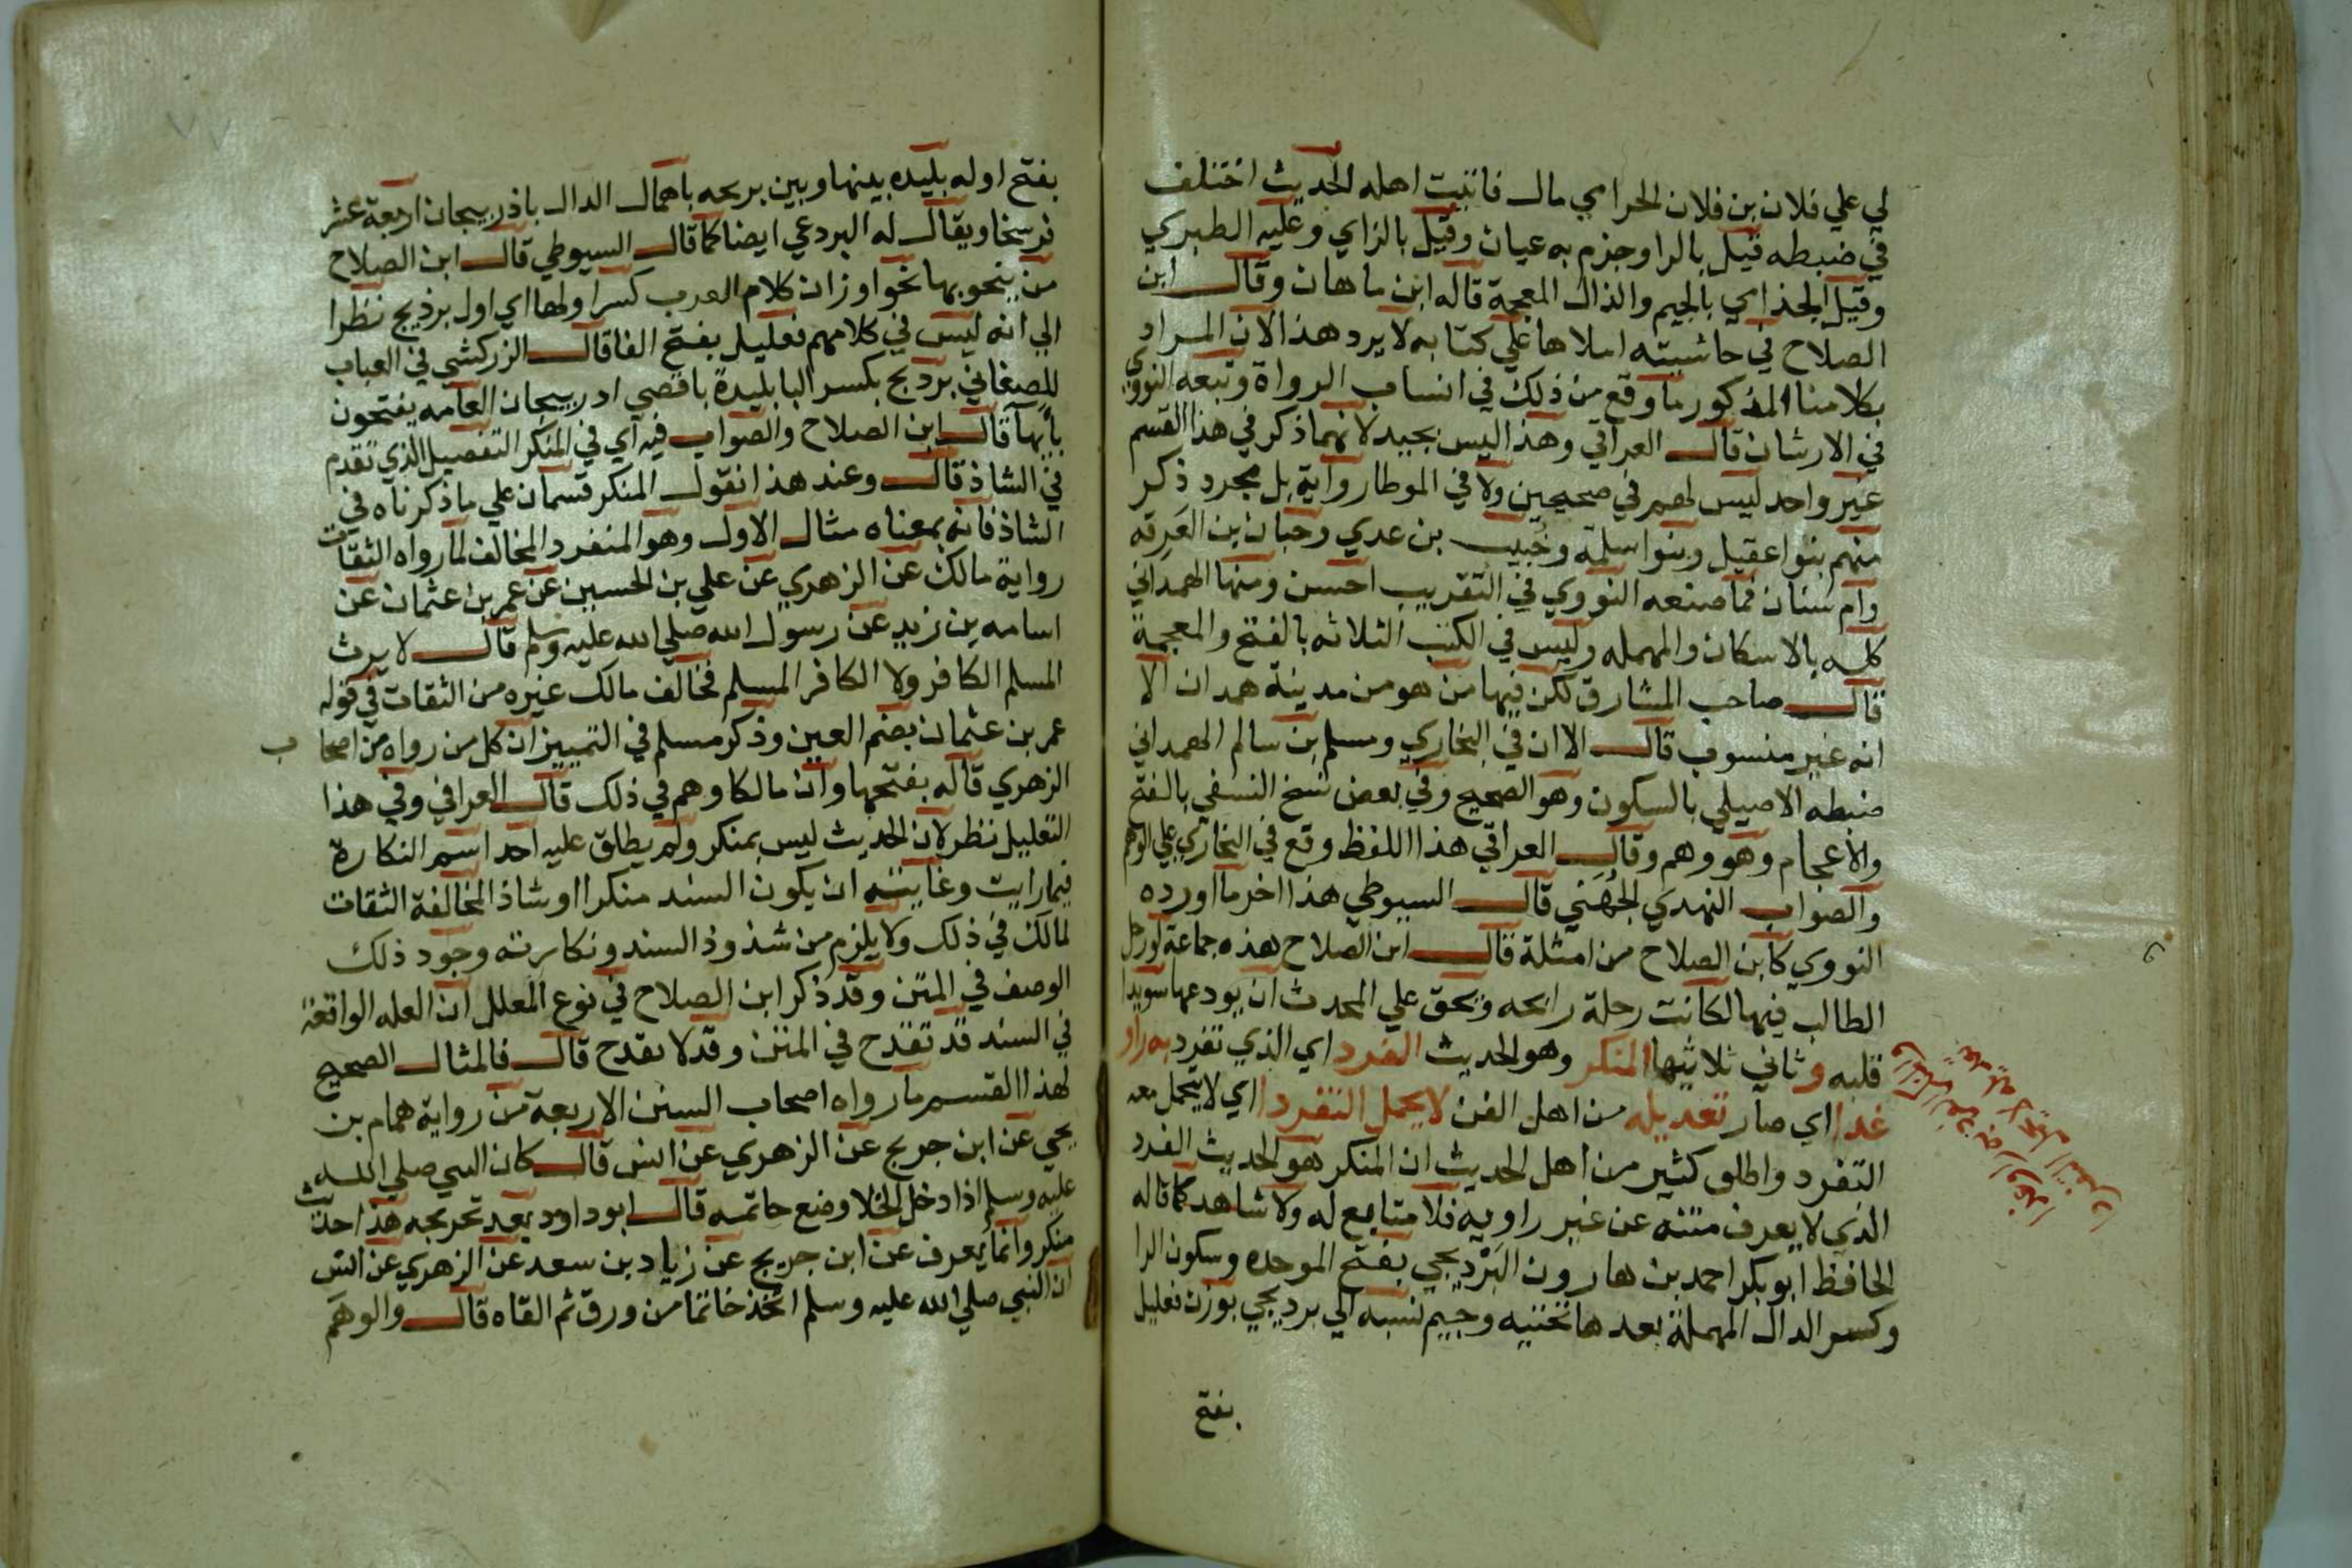 لي علي فلان بن فلان الحرامي مال فاتيت اهله الحديث اختلف
في ضبطه قيل بالرا وجزم به عياض وقيل بالزاي وعليه الطبري
وقيل الجذامي بالجيم والذال المعجمة قاله ابن ماهان وقال ابن
الصلاح في حاشيته املاها علي كتابه لا يرد هذا لان المراد
بكلامنا المذكور ما وقع من ذلك في انساب الرواة وتبعه النووي
في الارشاد قال العراقي وهذا ليس بجيد لانهما ذكر في هذا القسم
غير واحد ليس لهم في صحيحين ولا في الموطا رواية بل مجرد ذكر
منهم بنوا عقيل وبنوا سلمة وخبيب بن عدي وحبان بن العرقه
وام سنان فما صنعه النووي في التقريب احسن ومنها الهمداني
كله بالاسكان والمهمله وليس في الكتب الثلاثه بالفتح والمعجمة
قال صاحب المشارق لكن فيها من هو من مدينة همدان الا
انه غير منسوب قال الا ان في البخاري ومسلم بن سالم الهمداني
ضبطه الاصيلي بالسكون وهو الصحيح وفي بعض نسخ النسفي بالفتح
والاعجام وهو وهم وقال العراقي هذا اللفظ وقع في البخاري علي الوهم
والصواب النهدي الجهني قال السيوطي هذا اخر ما اورده
النووي كابن الصلاح من امثلة قال ابن الصلاح هذه جماعة لو رحل
الطالب فيها لكانت رحلة رابحه ويحق علي المحدث ان يودعها سويدا
قلبه وثاني ثلاثيها المنكر وهو الحديث الفرد اي الذي تفرد به راو
غدا اي صار تعديله من اهل الفن لا يحمل التفردا اي لا يحمل معه
التفرد واطلق كثير من اهل الحديث ان المنكر هو الحديث الفرد
الذي لا يعرف متنه عن غير راويه فلا متابع له ولا شاهد كما قاله
الحافظ ابو بكر احمد بن هارون البَرْديجي بفتح الموحده وسكون الرا
وكسر الدال المهملة بعدها تحتيه وجيم نسبه الي برديجي بوزن فعليل
بفتح
بفتح اوله بليده بينها وبين بريحه باهمال الدال باذربيجان اربعة عشر
فرسخا ويقال له البردعي ايضا كما قال السيوطي قال ابن الصلاح
من ينحو بها نحو اوزان كلام العرب كسر اولها اي اول برذيج نظرا
الي انه ليس في كلامهم فعليل بفتح الفا قال الزركشي في العباب
للصغاني برديج بكسر البا بليدة باقصي ادربيجان العامه يفتحون
بآيها قال ابن الصلاح والصواب فيه اي في المنكر التفصيل الذي تقدم
في الشاذ قال وعند هذا نقول المنكر قسمان علي ما ذكرناه في
الشاذ فانه بمعناه مثال الاول وهو المنفرد المخالف لما رواه الثقات
رواية مالك عن الزهري عن علي بن الحسين عن عمر بن عثمان عن
اسامه بن زيد عن رسول الله صلي الله عليه وسلم قال لا يرث
المسلم الكافر ولا الكافر المسلم فخالف مالك غيره من الثقات في قوله
عمر بن عثمان بضم العين وذكر مسلم في التمييز ان كل من رواه من اصحاب
الزهري قاله بفتحها وان مالكا وهم في ذلك قال العراقي وفي هذا
التعليل نظر لان الحديث ليس بمنكر ولم يطلق عليه احد اسم النكارة
فيما رايت وغايته ان يكون السند منكرا او شاذ المخالفة الثقات
لمالك في ذلك ولا يلزم من شذوذ السند ونكارته وجود ذلك
الوصف في المتن وقد ذكر ابن الصلاح في نوع المعلل ان العله الواقعة
في السند قد تقدح في المتن وقد لا تقدح قال فالمثال الصحيح
لهذا القسم ما رواه اصحاب السنن الاربعة من رواية همام بن
يحي عن ابن جريج عن الزهري عن انس قال كان النبي صلي الله
عليه وسلم اذا دخل الخلا وضع خاتمه قال ابو داود بعد تخريجه هذا حديث
منكر وانما يعرف عن ابن جريج عن زياد بن سعد عن الزهري عن انس
ان النبي صلي الله عليه وسلم اتخذ خاتما من ورق ثم القاه قال والوهم